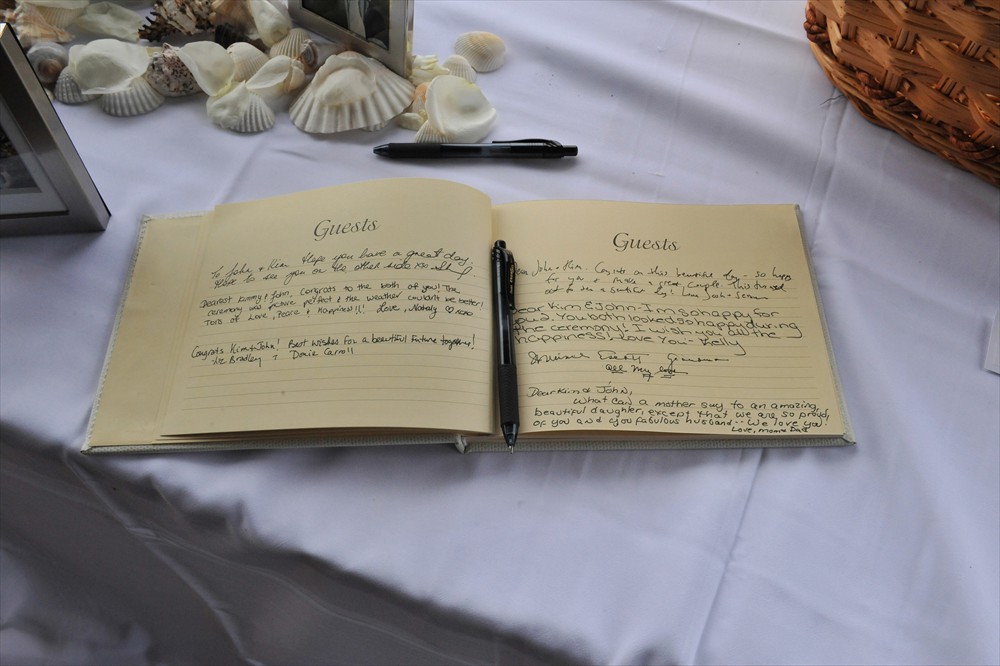 Guests
To John + Kim Hope you have a great day.
Hope to see you on the other side xo
Dearest Kimmy & John, Congrats to the both of you! The
ceremony was picture perfect & the weather couldn't be better!
Tons of Love, Peace & Happiness!! Love, Nataly xoxo
Congrats Kim & John! Best wishes for a beautiful future together!
Liz Bradley + Domie Carroll
Guests
John + Kim. Congrats on this beautiful day - so happy
for you + make a great couple. This turned
out to be a beautiful day! Love
Dear Kim & John - I'm so happy for
you. You both looked so happy during
the ceremony! I wish you all the
happiness! Love You - Kelly
All my love
Dear Kim & John,
What can a mother say to an amazing,
beautiful daughter, except that we are so proud
of you and you fabulous husband -- We love you!
Love, Mom & Dad